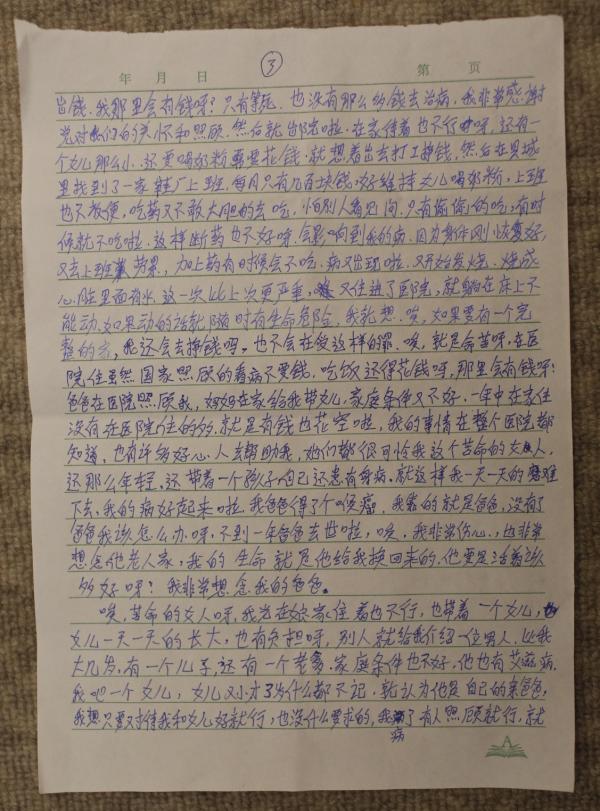 ③
年 月 日 第 页
出钱,我那里会有钱呀?只有等死,也没有那么多钱去治病,我非常感谢
党对我们的关怀和照顾,然后就出院啦,在家待着也不行呀,还有一
个女儿那么小,还要喝奶粉需要花钱,就想着出去打工挣钱,然后在县城
里找到了一家鞋厂上班,每月只有几百块钱,好维持女儿喝奶粉,上班
也不方便,吃药又不敢大胆的去吃,怕别人看见问,只有偷偷的吃,有时
候就不吃啦,这样断药也不好呀,会影响到我的病,因为身体刚恢复好,
又去上班劳累,加上药有时候会不吃,病又出现啦,又开始发烧,烧成
心脏里面有水,这一次比上次更严重,又住进了医院,就躺在床上不
能动,如果动的话就随时有生命危险,我就想,唉,如果要有一个完
整的家,我还会去挣钱吗,也不会在受这样的罪,唉,就是命苦呀,在医
院住虽然国家照顾的看病不要钱,吃饭还得花钱呀,那里会有钱呀?
爸爸在医院照顾我,妈妈在家给我带女儿,家庭条件又不好,一年中在家住
没有在医院住的多,就是有钱也花空啦,我的事情在整个医院都
知道,也有许多好心人去帮助我,她们都很可怜我这个苦命的女人,
还那么年轻,还带着一个孩子,自己还患有身病,就这样我一天一天的
下去,我的病好起来啦,我爸爸得了个喉癌,我靠的就是爸爸,没有了
爸爸我该怎么办呀,不到一年爸爸去世啦,唉,我非常伤心,也非常
想念他老人家,我的生命就是他给我换回来的,他要是活着该
多好呀?我非常想念我的爸爸。
唉,苦命的女人呀,我老在娘家住着也不行,也带着一个女儿,
女儿一天一天的长大,也有负担呀,别人就给我介绍一位男人,比我
大几岁,有一个儿子,还有一个老爹,家庭条件也不好,他也有艾滋病,
我也一个女儿,女儿又小才3岁什么都不记,就认为他是自己的亲爸爸,
我想只要对待我和女儿好就行,也没什么要求的,我病了有人照顾就行,就